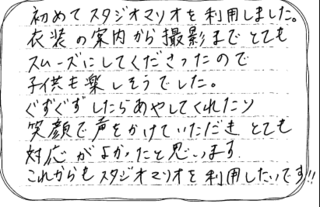 初めてスタジオマリオを利用しました。
衣装の案内から撮影までとても
スムーズにしてくださったので
子供も楽しそうでした。
ぐずぐずしたらあやしてくれたり
笑顔で声をかけていただき とても
対応がよかったと思います
これからもスタジオマリオを利用したいです!!